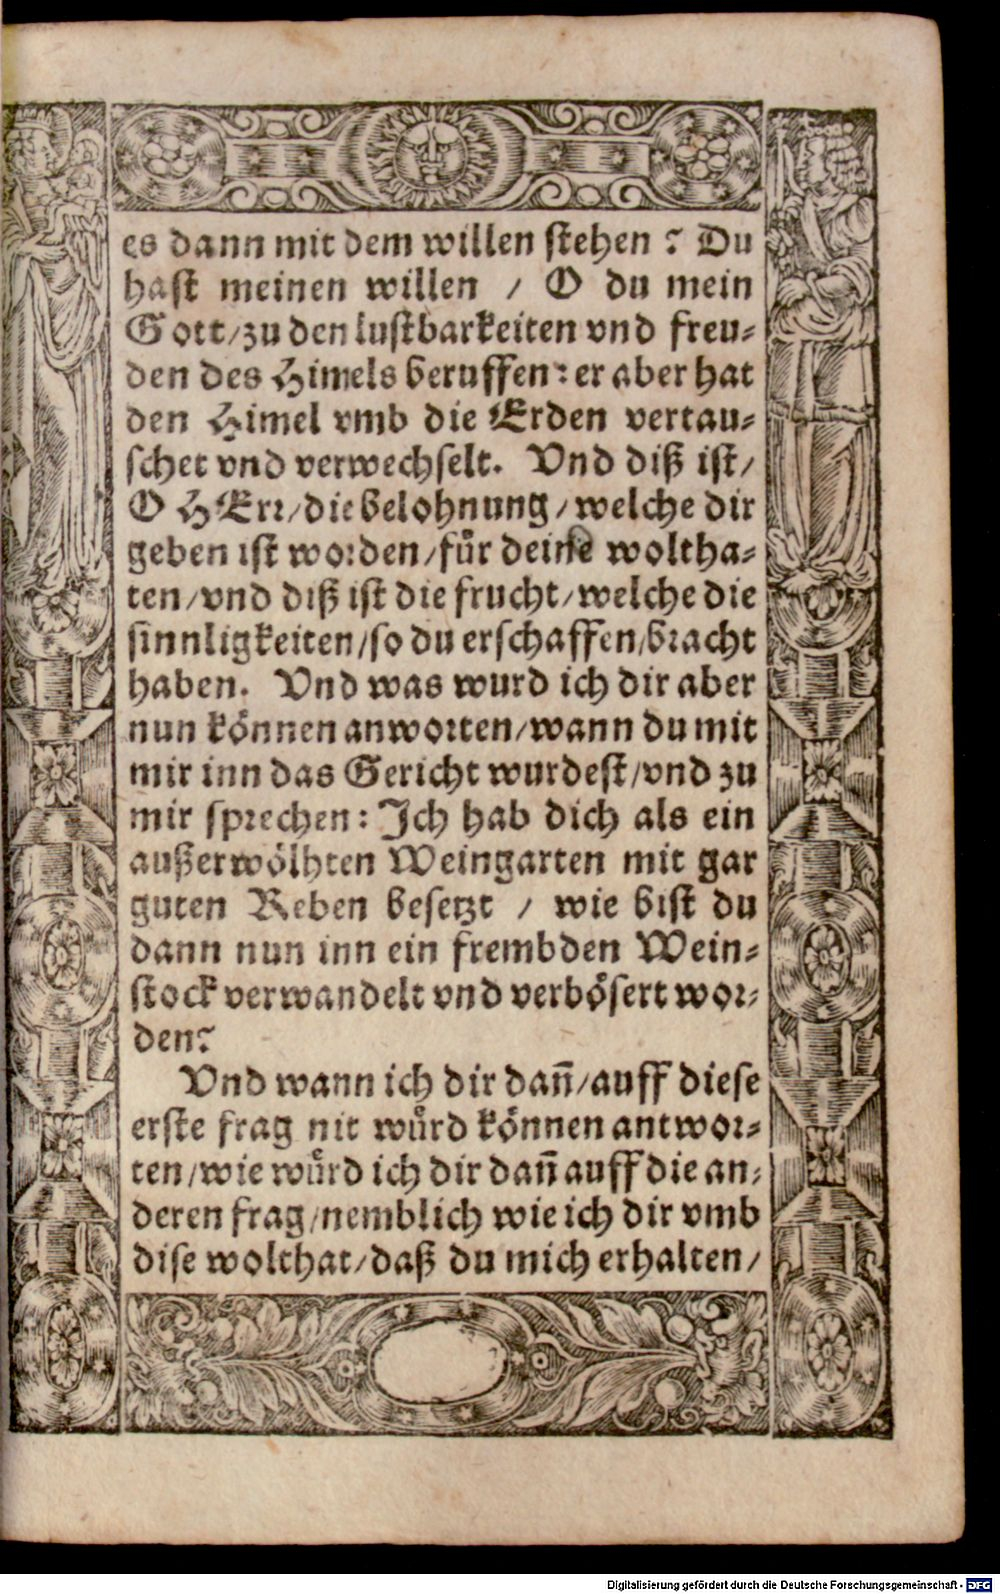 es dann mit dem willen stehen? Du
hast meinen willen / O du mein
Gott/zu den lustbarkeiten vnd freu-
den des Himels beruffen: er aber hat
den Himel vmb die Erden vertau-
schet vnd verwechselt. Vnd diß ist/
O HErr/die belohnung/welche dir
geben ist worden/für deine woltha-
ten/vnd diß ist die frucht/welche die
sinnligkeiten/so du erschaffen/bracht
haben. Vnd was wurd ich dir aber
nun können anworten/wann du mit
mir inn das Gericht wurdest/vnd zu
mir sprechen: Ich hab dich als ein
außerwölhten Weingarten mit gar
guten Reben besetzt / wie bist du
dann nun inn ein frembden Wein-
stock verwandelt vnd verbösert wor-
den?
Vnd wann ich dir dañ/auff diese
erste frag nit wůrd können antwor-
ten/wie wůrd ich dir dañ auff die an-
deren frag/nemblich wie ich dir vmb
dise wolthat/daß du mich erhalten/
Digitalisierung gefördert durch die Deutsche Forschungsgemeinschaft - DFG